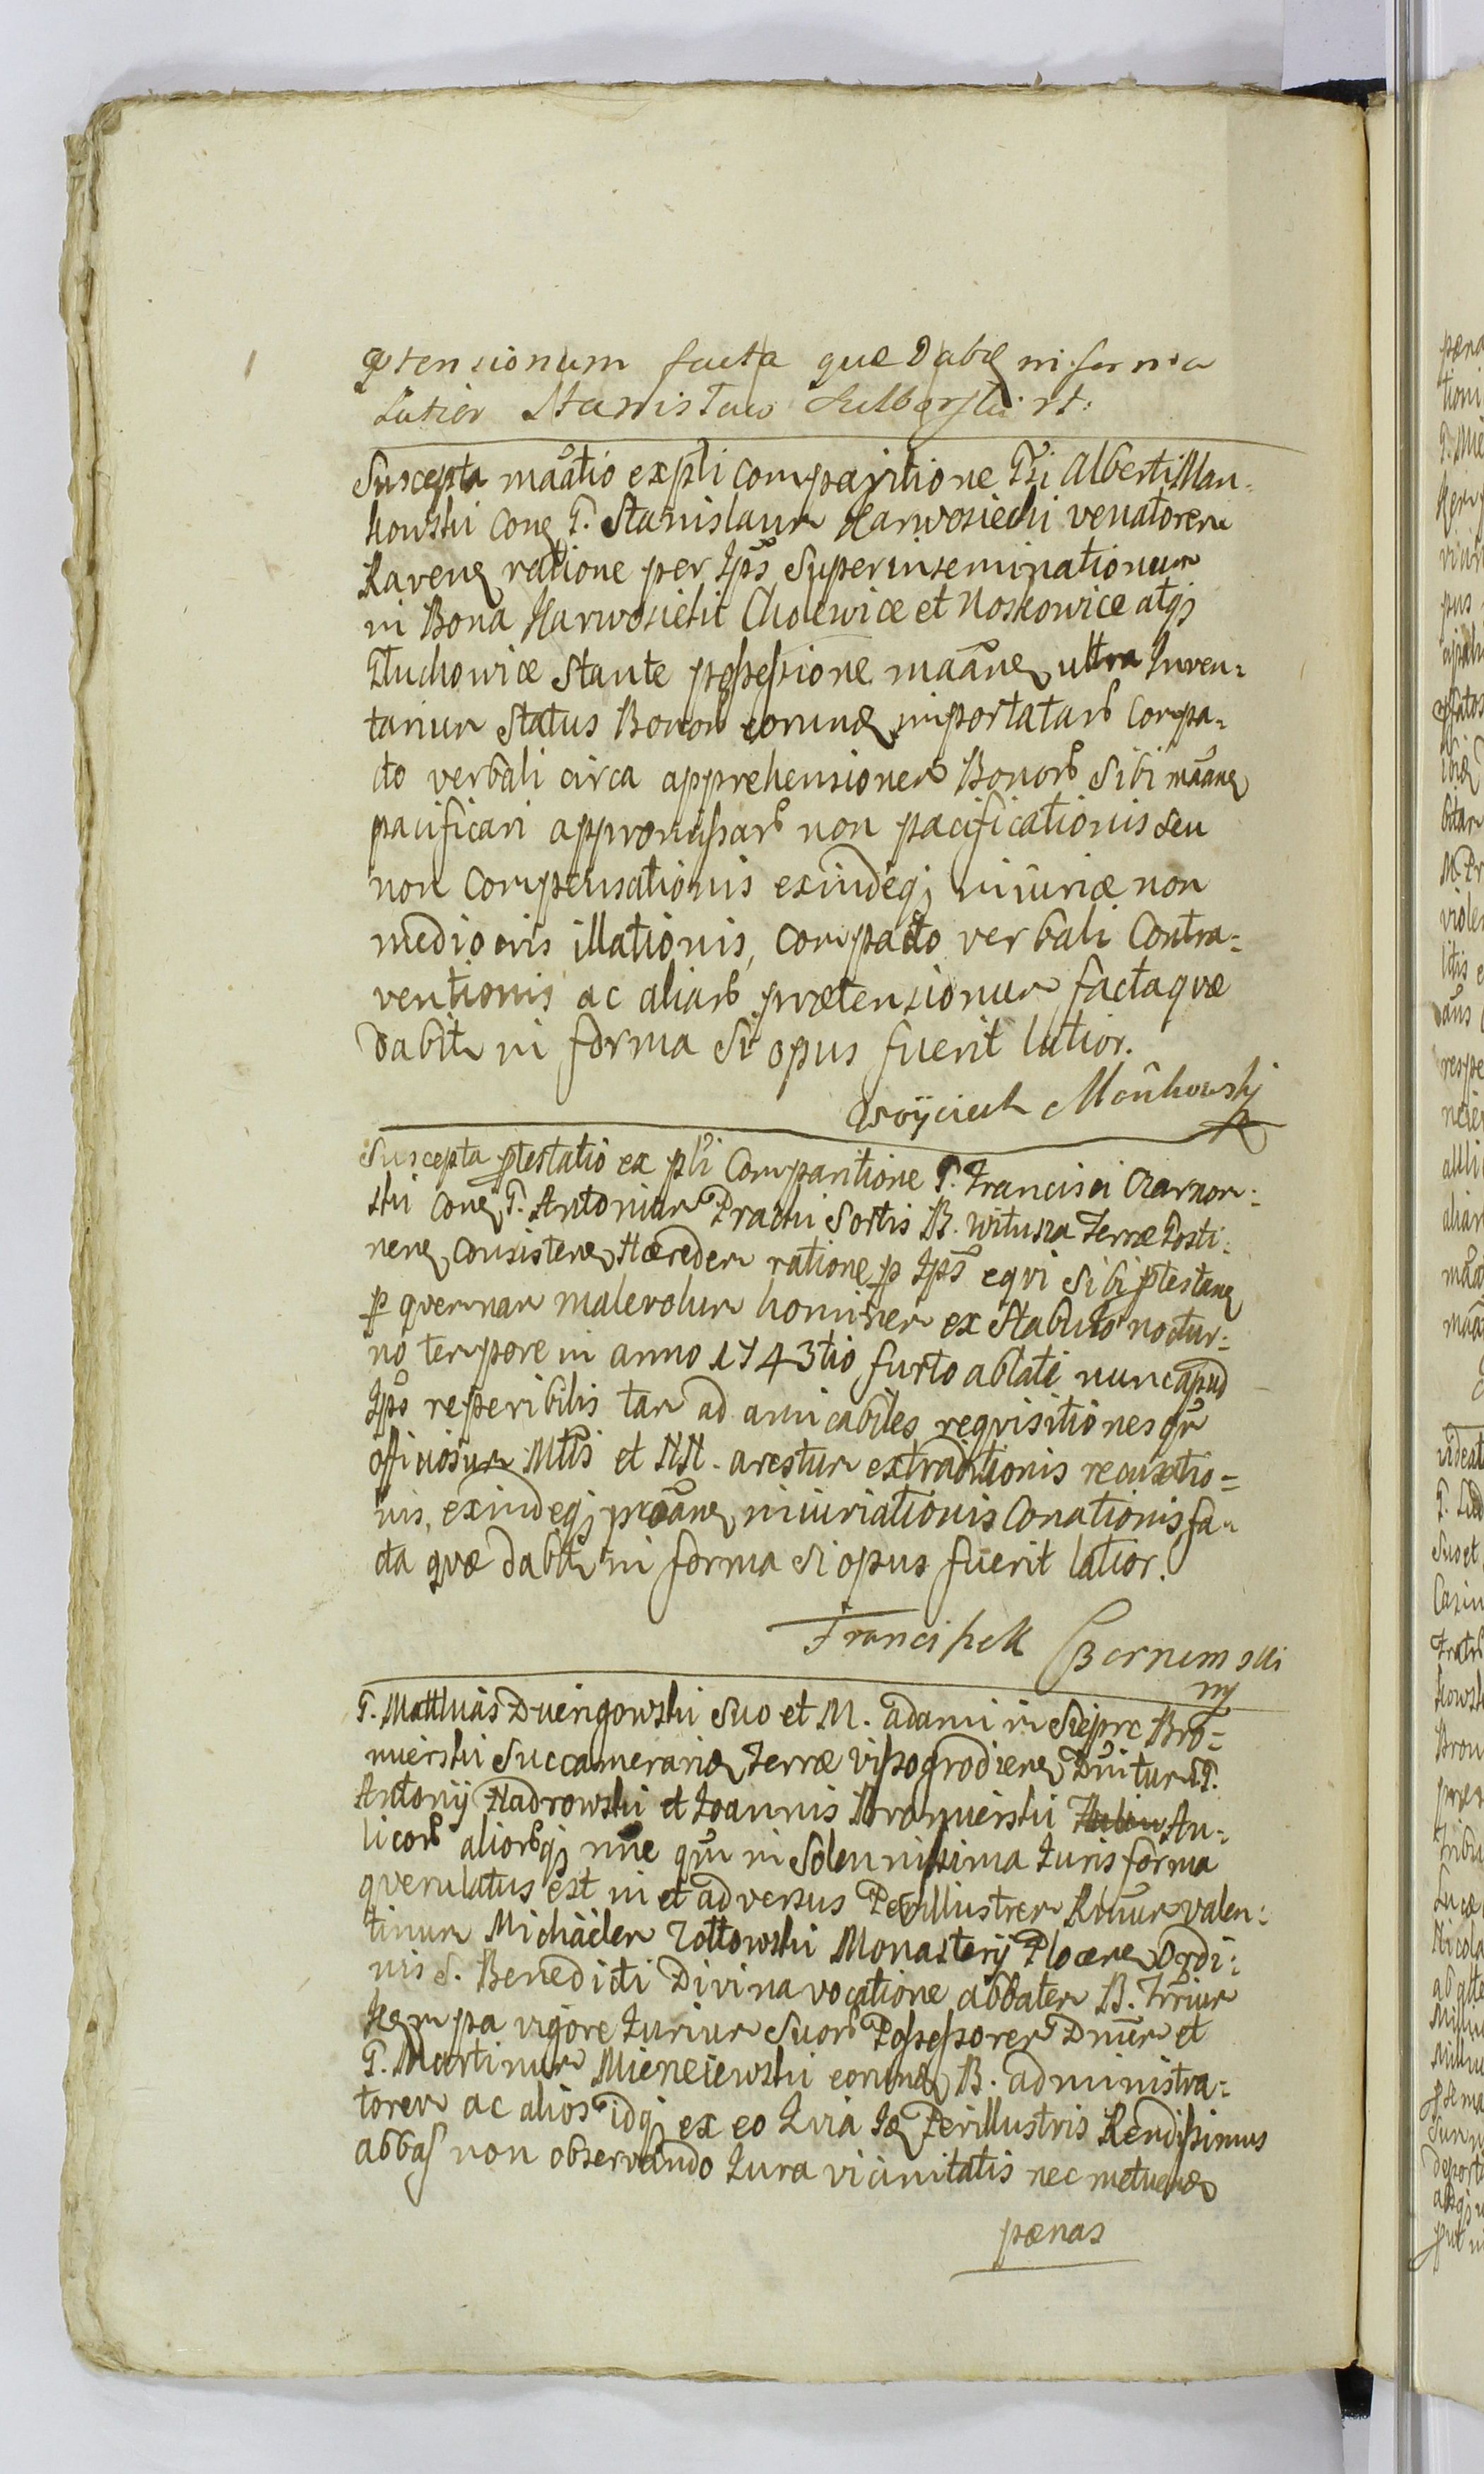 prtensionum facta quæ dabit in forma
Latior Stanisław
Suscepta maãtio ex psti comparitione Gsi Alberti Man-
kowski con G. Stanislaum Karwosiecki venatorem
Raven ratione per Ips Superinseminationum
in Bona Karwosieki Cholewice et Noskowice atq;
Głuchowice stante possessione maãne ultra Inven-
tarium Status Bonor eorund importatar compa-
cto verbali circa apprehensionem Bonor sibi maãne
pacificari appromissar non pacificationis seu
non compensationis exindeq; iniuriæ non
mediocris illationis, compacto verbali contra-
ventionis ac aliar prætensionum facta quæ
dabit in forma si opus fuerit latior.
Woyciech Mańkowskij
Suscepta ptestatio ex psti comparitione G. Francisci Czarnom-
ski con G. Antonium Pracki Sortis B. Witusza Terræ Gosti-
nen consisten Hæredem ratione p Ips eqvi sibi ptestan
p qvemnam malevolum hominem ex stabulo noctur-
no tempore in anno 1743tio furto ablati nunc apud
Ips reperibilis tam ad amicabiles reqvisitiones qm
officiosum Mtis et NN. arestum extraditionis recusatio-
nis, exindeq; ptãne iniuriationis conationis fa-
cta qvæ dabit in forma si opus fuerit latior.
Franciszek Czarnomski
mp
G. Matthias Dziengowski suo et M. Adami in Sieprc Bro-
mierski Succamerarii Terræ Vissogrodien Dni tum G.
Antonij Nadrowski et Joannis Bromierski Au-
licor aliorq; nõe qm in solennissima Iuris forma
qverulatus est in et adversus Perillustrem Rndum Valen-
tinum Michaelem Zołtowski Monasterij Plocen Ordi-
nis S. Benedicti Divina vocatione Abbatem B. Trrium
Kempa vigore Iurium suor Possessorem Dnum et
G. Martinum Mieneiewski eorund B. administra-
torem ac alios idq; ex eo Quia Id Perillustris Rendissimus
Abbas non observando Iura vicinitatis nec metuendo
pænas